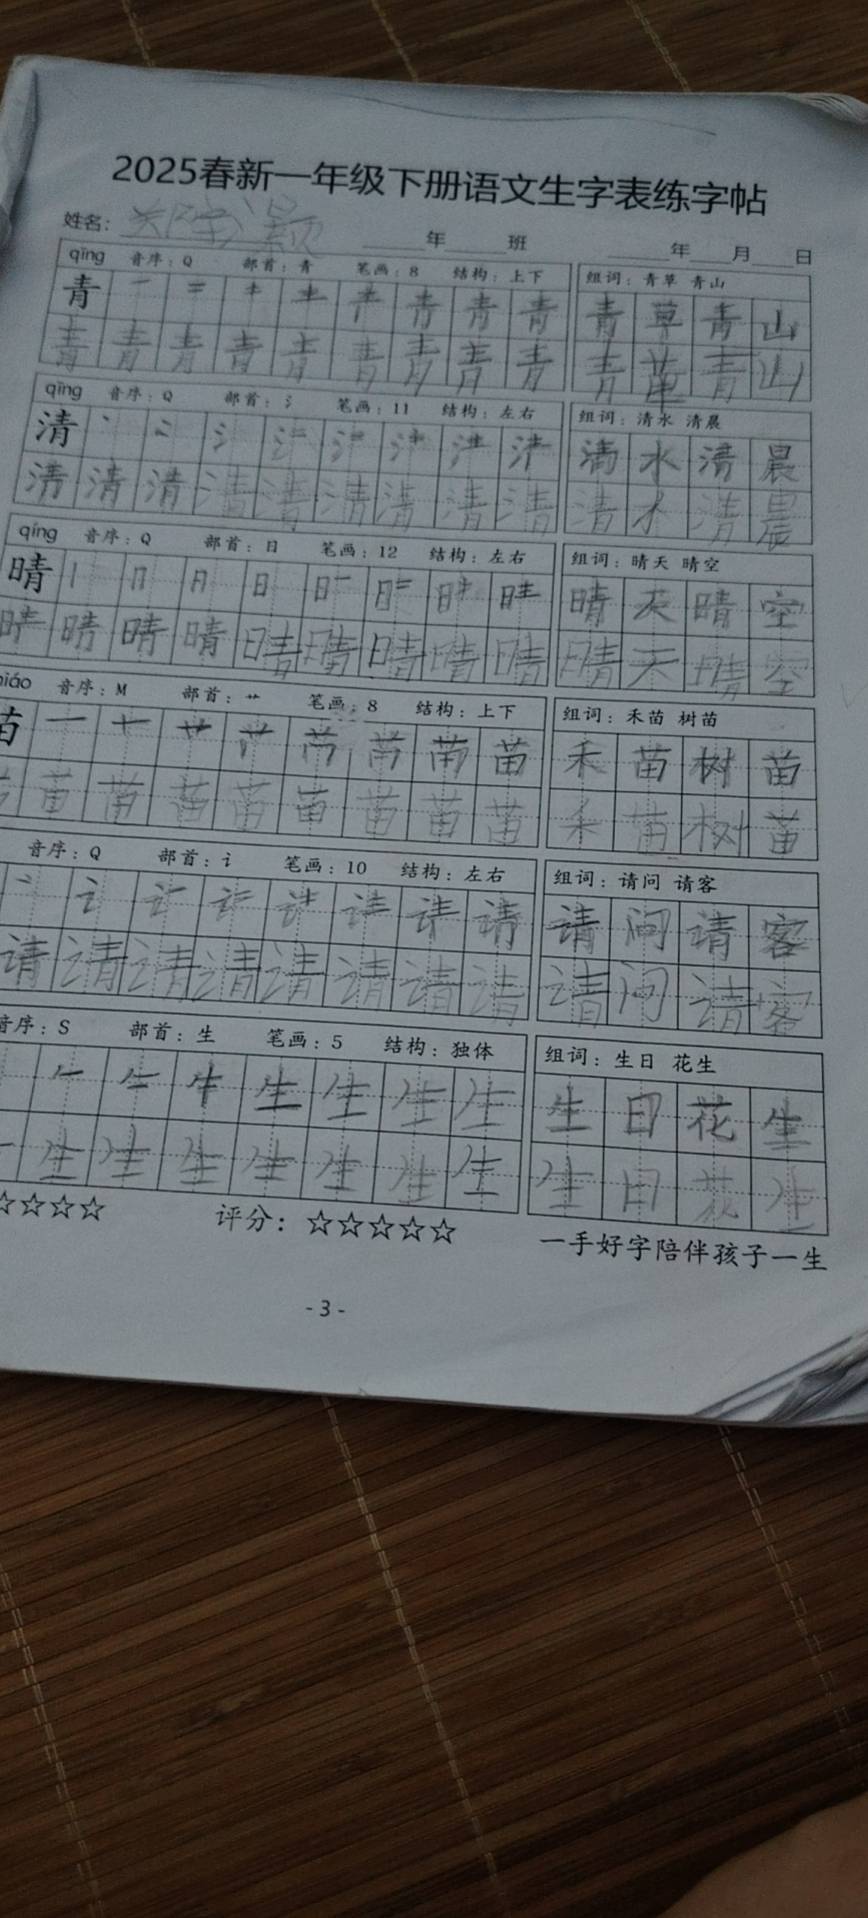 2025春新一年级下册语文生字表练字帖
姓名： 年 班 年 月 日
qīng 音序：Q 部首：青 笔画：8 结构：上下 组词：青草 青山
青 一 二 キ 主 青 青 青 青 草 青 山
青 青 青 青 青 青 青 青 青 青 草 青 山
qīng 音序：Q 部首：氵 笔画：11 结构：左右 组词：清水 清晨
清 丶 冫 氵 清 水 清 晨
清 清 清 清 清 清 清 清 清 清 水 清 晨
qíng 音序：Q 部首：日 笔画：12 结构：左右 组词：晴天 晴空
晴 丨 冂 日 日 晴 天 晴 空
晴 晴 晴 晴 晴 晴 晴 晴 晴 天 晴 空
miáo 音序：M 部首：艹 笔画：8 结构：上下 组词：禾苗 树苗
苗 一 十 艹 苗 禾 苗 树 苗
苗 苗 苗 苗 苗 苗 苗 苗 禾 苗 树 苗
音序：Q 部首：讠 笔画：10 结构：左右 组词：请问 请客
丶 讠 请 请 问 请 客
请 请 请 请 请 请 请 请 请 问 请 客
音序：S 部首：生 笔画：5 结构：独体 组词：生日 花生
生 生 生 生 生 日 花 生
生 生 生 生 生 生 生 生 日 花 生
☆☆☆☆ 评分：☆☆☆☆☆ 一手好字陪伴孩子一生
- 3 -